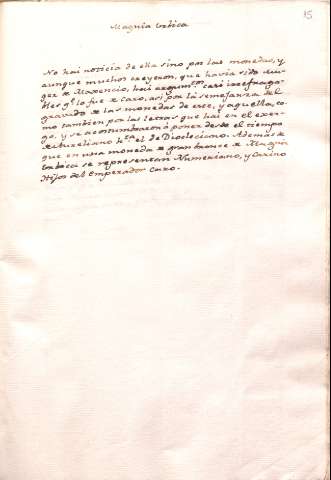 15
Magnia Urbica
No hai noticia de ella sino por las monedas, y
aunque muchos creyeron, que havia sido mu-
ger de Maxencio, hai argum.tos casi irrefraga-
bles q.e lo fue de Caro, asi por la semejanza del
gravado de las monedas de este, y aquella, co-
mo tambien por las letras que hai en el exer-
go, y se acostumbraron à poner desde el tiempo
de Aureliano h.ta el de Diocleciano. Ademàs de
que en una moneda de gran bronce de Magnia
Urbica se representan Numeriano, y Carino
Hijos del Emperador Caro.